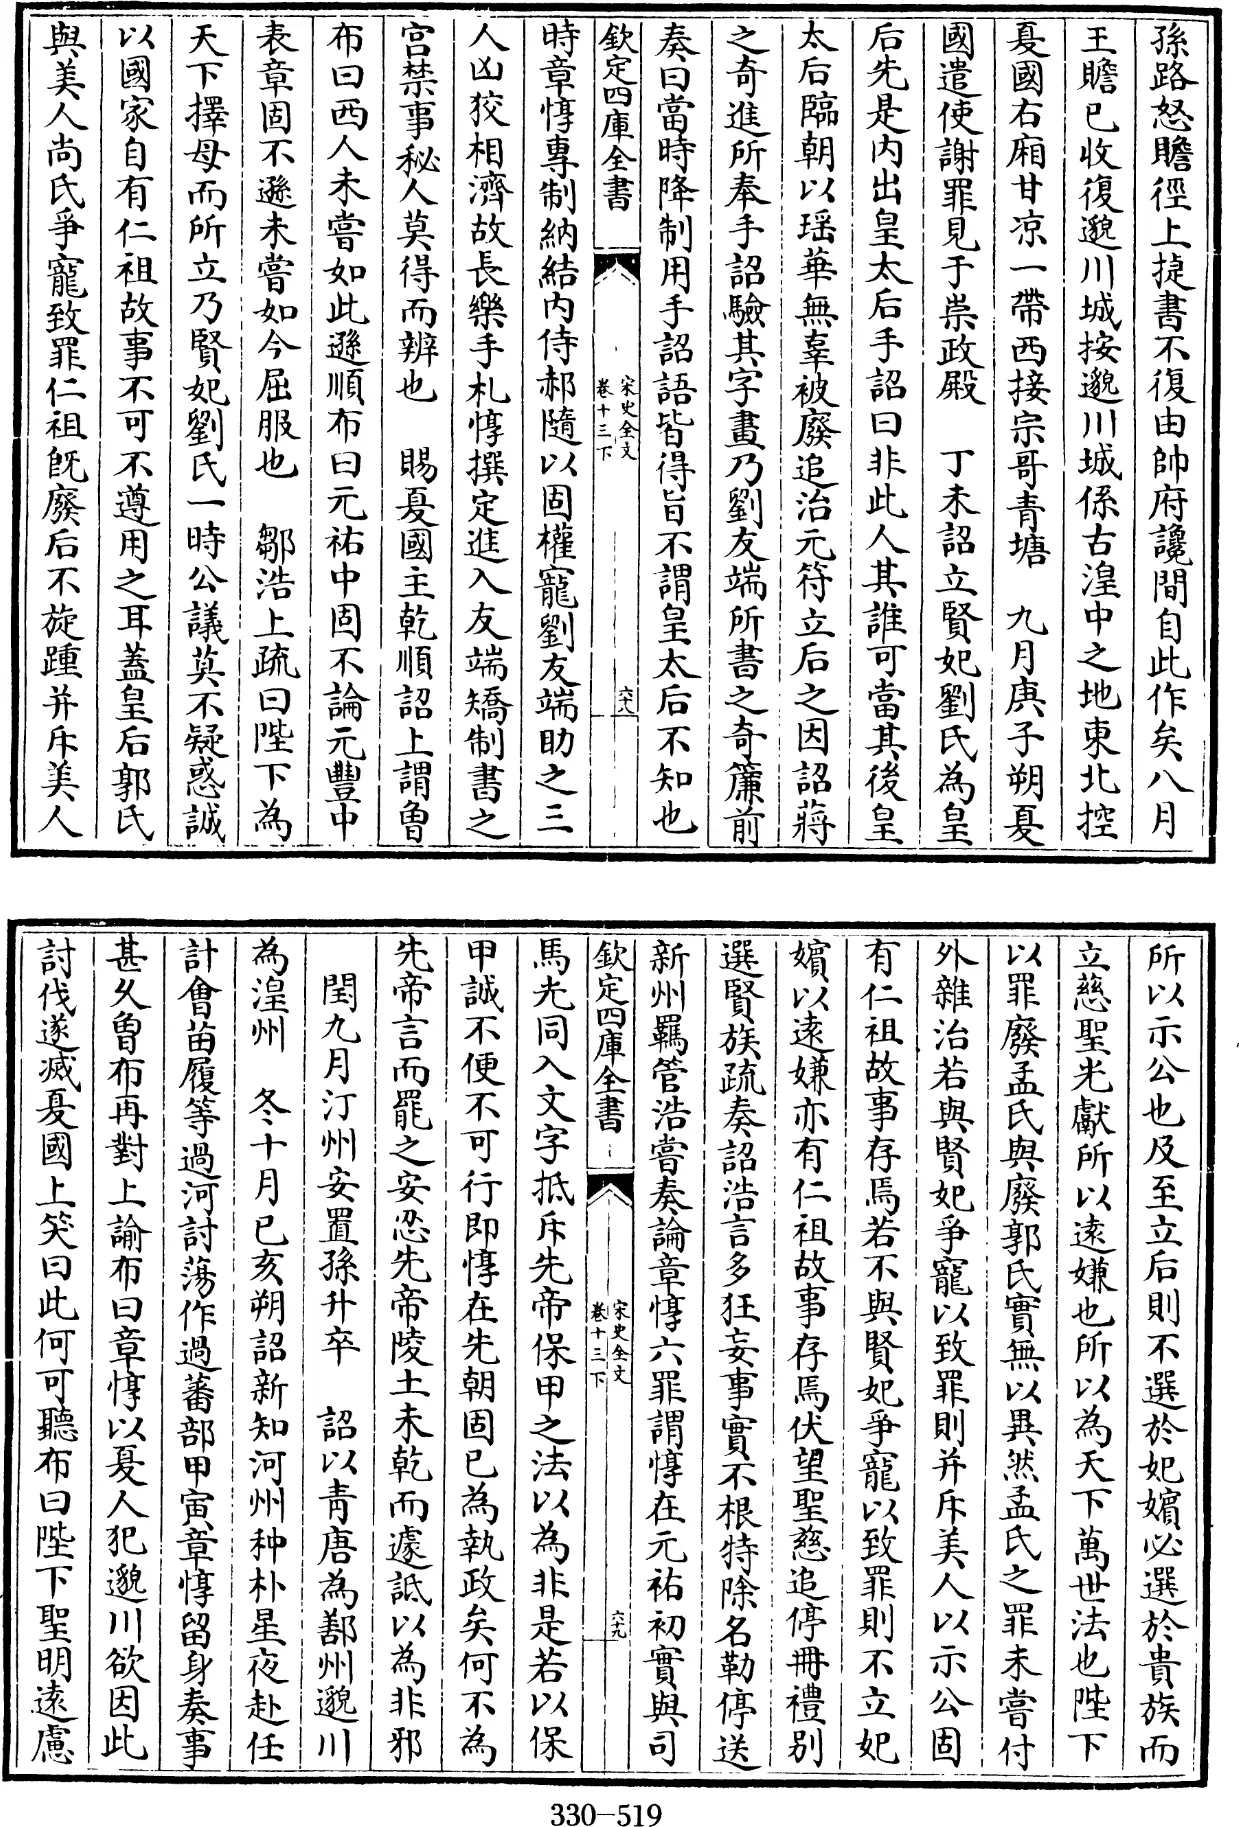 孫路怒贍徑上捷書不復由帥府讒間自此作矣八月
王贍已收復邈川城按邈川城係古湟中之地東北控
夏國右廂甘凉一帶西接宗哥青塘　九月庚子朔夏
國遣使謝罪見于崇政殿　丁未詔立賢妃劉氏為皇
后先是内出皇太后手詔曰非此人其誰可當其後皇
太后臨朝以瑶華無辜被廢追治元符立后之因詔蔣
之奇進所奉手詔驗其字畫乃劉友端所書之奇簾前
奏曰當時降制用手詔語皆得旨不謂皇太后不知也
欽定四庫全書
宋史全文
卷十三下
六十八
時章惇專制納結内侍郝隨以固權寵劉友端助之三
人凶狡相濟故長樂手札惇撰定進入友端矯制書之
宫禁事秘人莫得而辨也　賜夏國主乾順詔上謂曾
布曰西人未嘗如此遜順布曰元祐中固不論元豐中
表章固不遜未嘗如今屈服也　鄒浩上疏曰陛下為
天下擇母而所立乃賢妃劉氏一時公議莫不疑惑誠
以國家自有仁祖故事不可不遵用之耳蓋皇后郭氏
與美人尚氏爭寵致罪仁祖既廢后不旋踵并斥美人
所以示公也及至立后則不選於妃嬪必選於貴族而
立慈聖光獻所以遠嫌也所以為天下萬世法也陛下
以罪廢孟氏與廢郭氏實無以異然孟氏之罪未嘗付
外雜治若與賢妃爭寵以致罪則并斥美人以示公固
有仁祖故事存焉若不與賢妃爭寵以致罪則不立妃
嬪以遠嫌亦有仁祖故事存焉伏望聖慈追停冊禮别
選賢族疏奏詔浩言多狂妄事實不根特除名勒停送
新州羈管浩嘗奏論章惇六罪謂惇在元祐初實與司
欽定四庫全書
宋史全文
卷十三下
六十九
馬光同入文字抵斥先帝保甲之法以為非是若以保
甲誠不便不可行即惇在先朝固已為執政矣何不為
先帝言而罷之安忍先帝陵土未乾而遽詆以為非邪
閏九月汀州安置孫升卒　詔以青唐為鄯州邈川
為湟州　冬十月已亥朔詔新知河州种朴星夜赴任
計會苗履等過河討蕩作過蕃部甲寅章惇留身奏事
甚久曾布再對上諭布曰章惇以夏人犯邈川欲因此
討伐遂滅夏國上笑曰此何可聽布曰陛下聖明遠慮
330-519